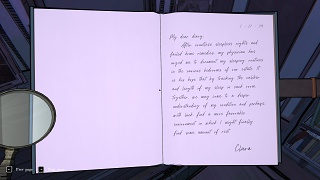 My dear diary,
After countless sleepless nights and
fevered brain ramblers, my physician has
urged me to document my sleeping routines
in the various bedrooms of our estate. It
is his hope that by tracking the various
and length of my sleep in each room,
together we may come to a deeper
understanding of my condition and perhaps,
with luck find a more favourable
environment in which I might finally
find some manner of rest.
Clara